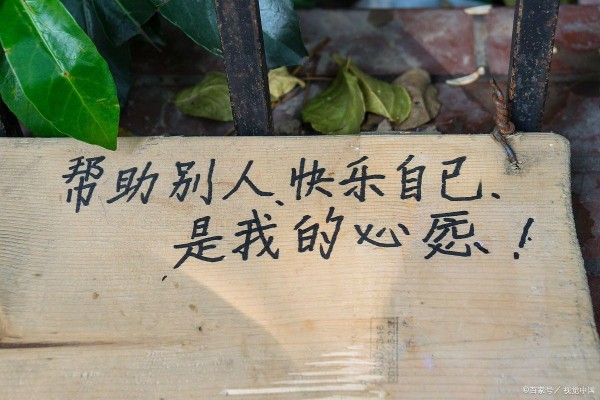 帮助别人、快乐自己、
是我的心愿！
©百家号／视觉中国